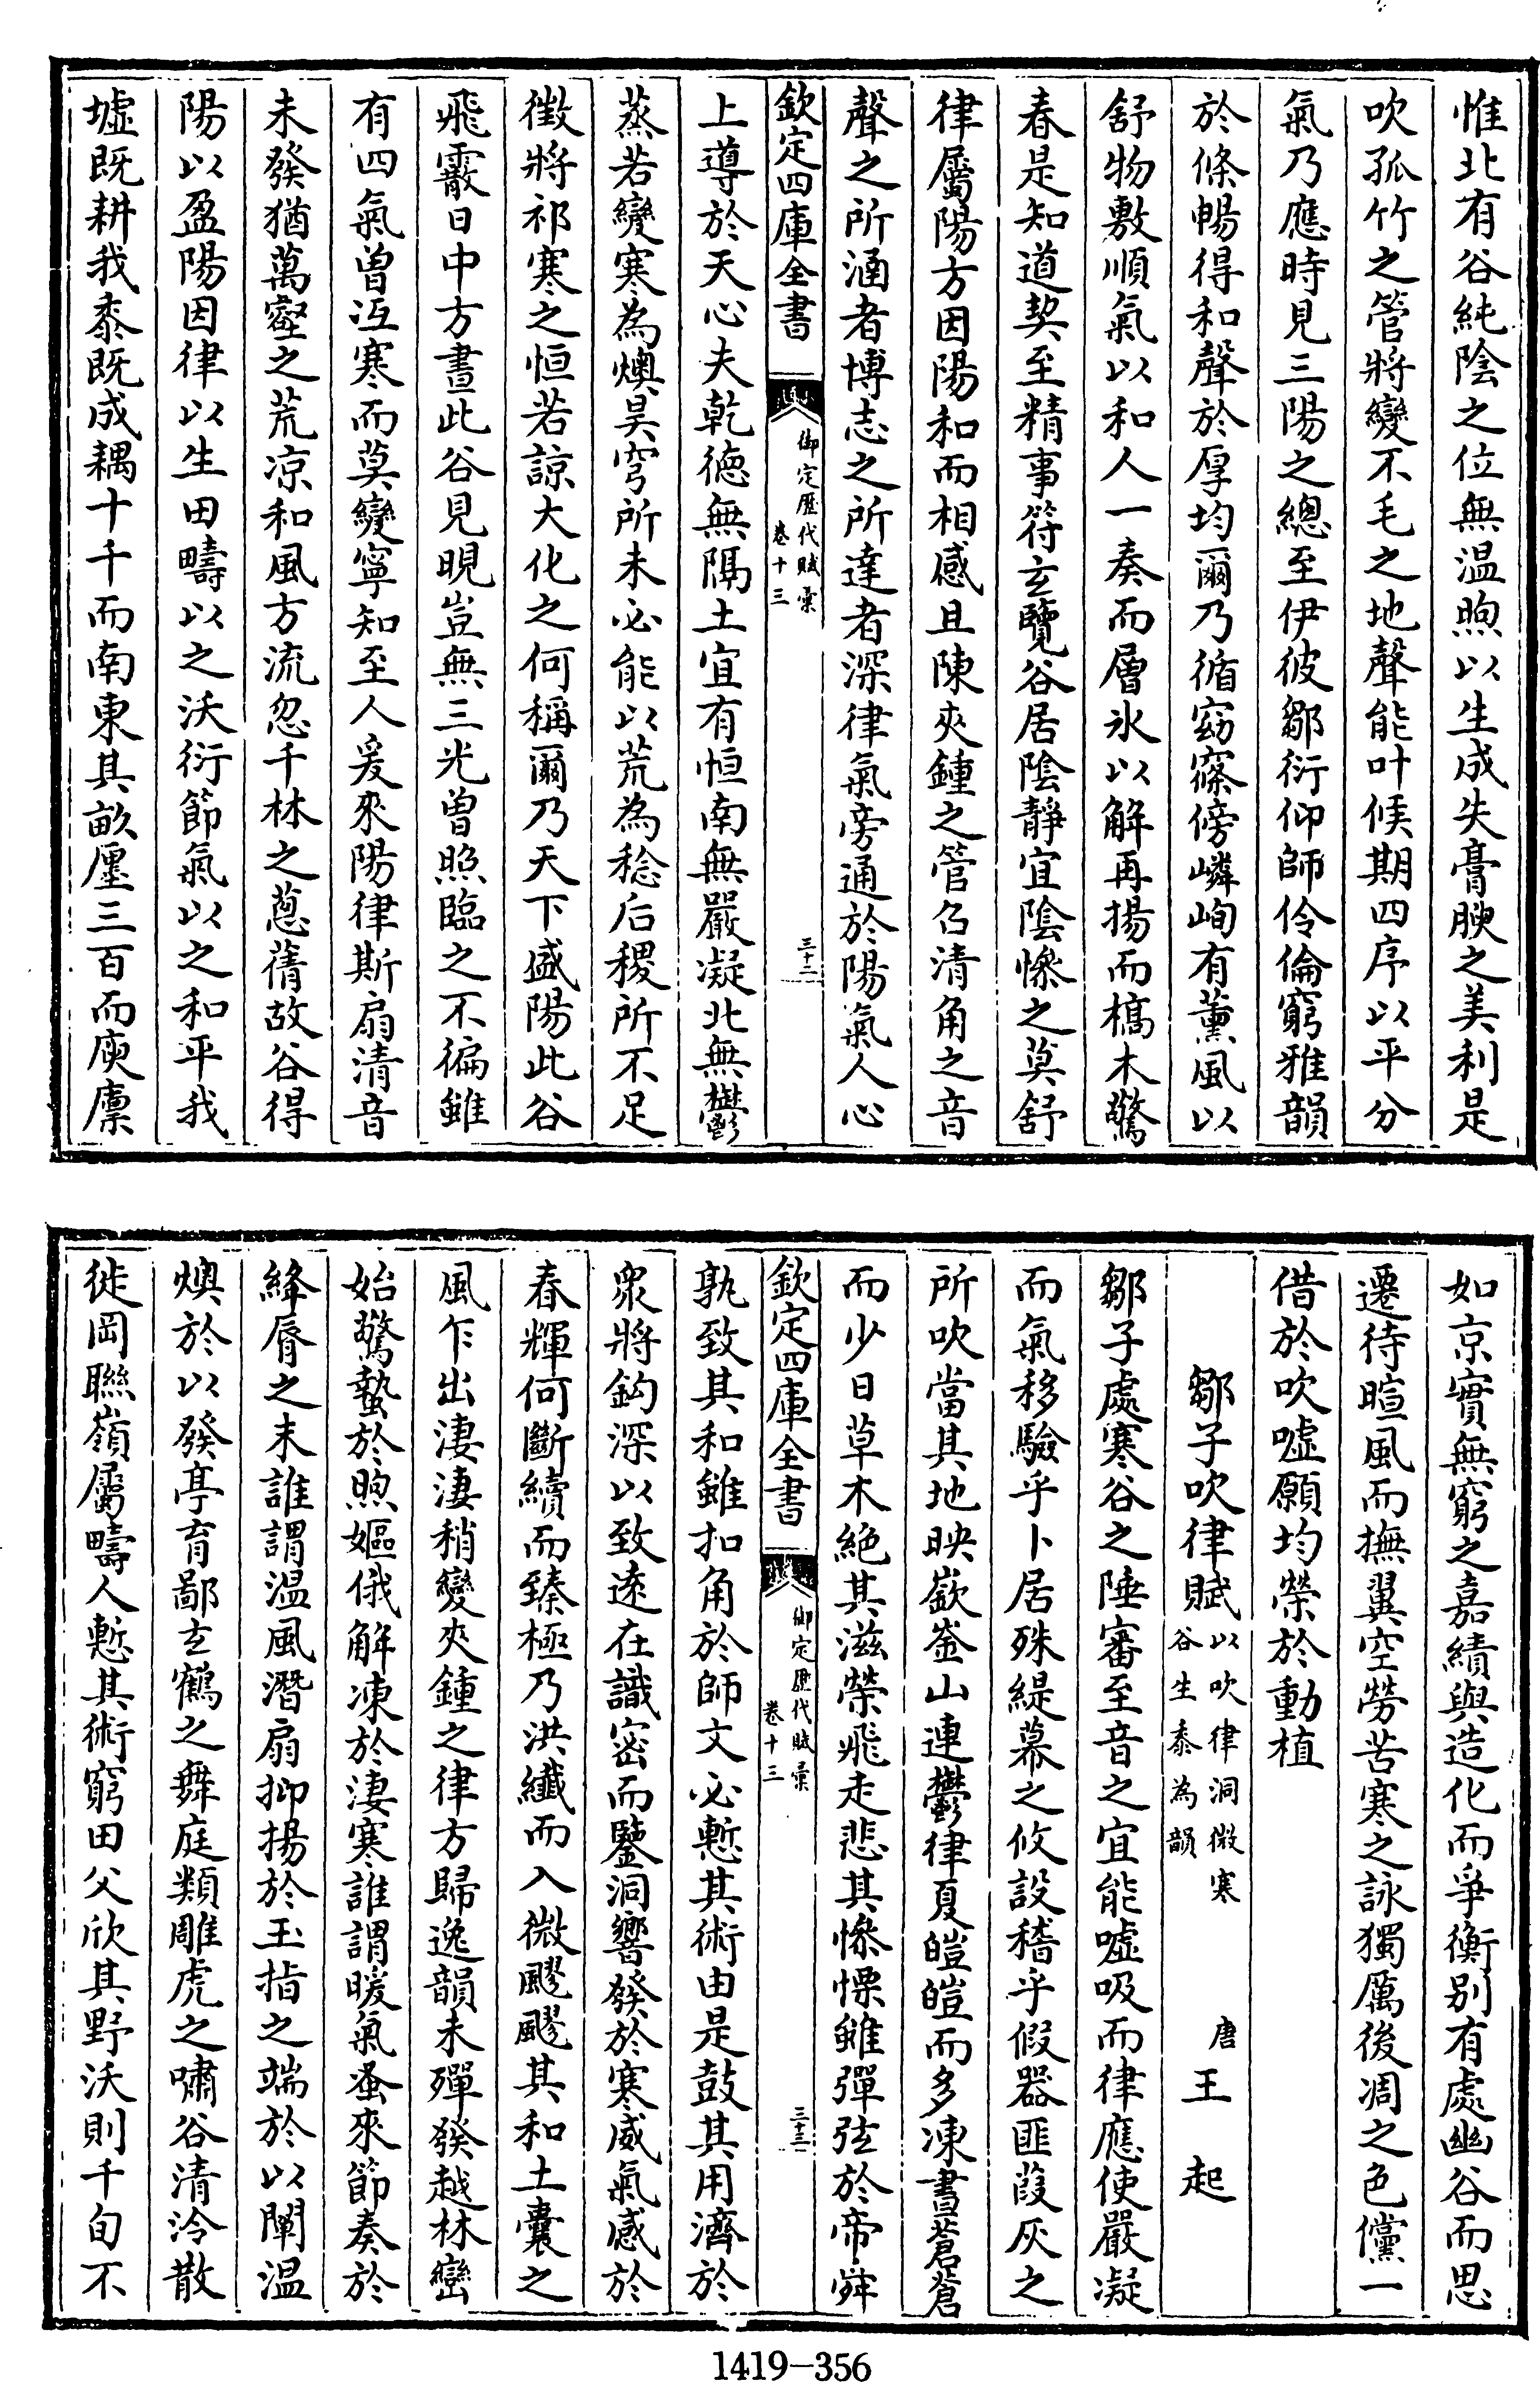 惟北有谷純陰之位無温煦以生成失膏腴之美利是
吹孤竹之管將變不毛之地聲能叶候期四序以平分
氣乃應時見三陽之總至伊彼鄒衍仰師伶倫窮雅韻
於條暢得和聲於厚均爾乃循窈窱傍嶙峋有薰風以
舒物敷順氣以和人一奏而層氷以解再揚而槁木驚
春是知道契至精事符玄覽谷居陰靜宜陰慘之莫舒
律屬陽方因陽和而相感且陳夾鍾之管召清角之音
聲之所涵者博志之所達者深律氣旁通於陽氣人心
欽定四庫全書
御定歴代賦彙
卷十三
三十二
上導於天心夫乾徳無隅土宜有恒南無嚴凝北無鬱
蒸若變寒為燠昊穹所未必能以荒為稔后稷所不足
徴將祁寒之恒若諒大化之何稱爾乃天下盛陽此谷
飛霰日中方晝此谷見晛豈無三光曽照臨之不徧雖
有四氣曽冱寒而莫變寧知至人爰來陽律斯扇清音
未發猶萬壑之荒凉和風方流忽千林之蔥蒨故谷得
陽以盈陽因律以生田疇以之沃衍節氣以之和平我
墟既耕我黍既成耦十千而南東其畝廛三百而庾廪
如京實無窮之嘉績與造化而爭衡别有處幽谷而思
遷待暄風而撫翼空勞苦寒之詠獨厲後凋之色儻一
借於吹噓願均榮於動植
鄒子吹律賦
以吹律洞微寒
谷生黍為韻
唐
王起
鄒子處寒谷之陲審至音之宜能噓吸而律應使嚴凝
而氣移驗乎卜居殊緹幕之攸設稽乎假器匪葭灰之
所吹當其地映嶔崟山連鬱律夏皚皚而多凍晝蒼蒼
而少日草木絶其滋榮飛走悲其慘慄雖彈弦於帝舜
孰致其和雖扣角於師文必慙其術由是鼓其用濟於
衆將鈎深以致逺在識密而鑒洞響發於寒威氣感於
春輝何斷續而臻極乃洪纎而入微飂飂其和土囊之
風乍出淒淒稍變夾鍾之律方歸逸韻未殫發越林巒
始驚蟄於煦嫗俄解凍於淒寒誰謂暖氣蚤來節奏於
絳脣之末誰謂温風潛扇抑揚於玉指之端於以闡温
燠於以發亭育鄙玄鶴之舞庭類雕虎之嘯谷清泠散
徙岡聯嶺屬疇人慙其術窮田父欣其野沃則千旬不
1419-356